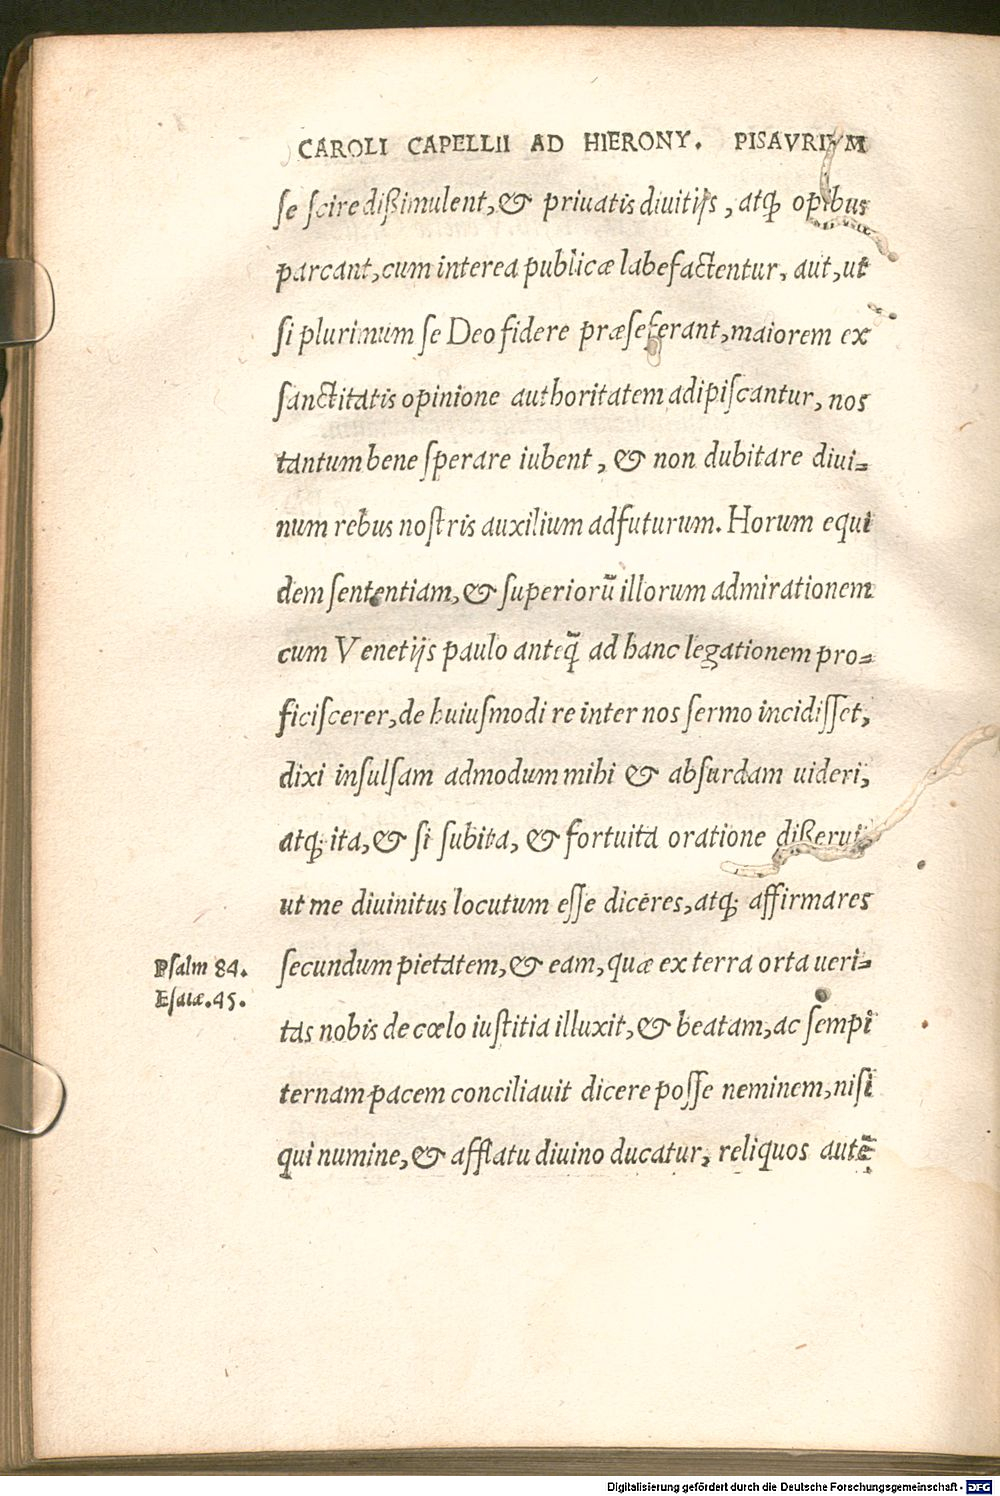 CAROLI CAPELLII AD HIERONY. PISAVRIVM
se scire dißimulent, & priuatis diuitijs, atq; opibus
parcant, cum interea publicæ labefactentur, aut, ut
si plurimum se Deo fidere præseferant, maiorem ex
sanctitatis opinione authoritatem adipiscantur, nos
tantum bene sperare iubent, & non dubitare diui-
num rebus nostris auxilium adfuturum. Horum equi
dem sententiam, & superiorū illorum admirationem
cum Venetijs paulo anteq̃ ad hanc legationem pro-
ficiscerer, de huiusmodi re inter nos sermo incidisset,
dixi insulsam admodum mihi & absurdam uideri,
atq; ita, & si subita, & fortuita oratione dißerui,
ut me diuinitus locutum esse diceres, atq; affirmares
secundum pietatem, & eam, quæ ex terra orta ueri-
Psalm 84.
Esaiæ. 45.
tas nobis de cœlo iustitia illuxit, & beatam, ac sempi
ternam pacem conciliauit dicere posse neminem, nisi
qui numine, & afflatu diuino ducatur, reliquos autē
Digitalisierung gefördert durch die Deutsche Forschungsgemeinschaft - DFG